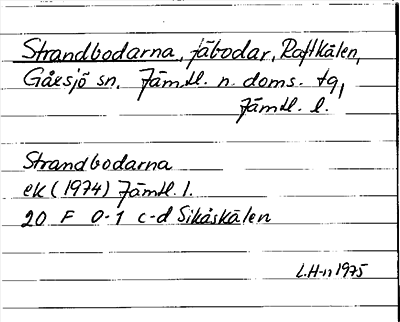 Strandbodarna, fäbodar, Raftkälen,
Gåxsjö sn. Jämtl. n. doms. tg,
Jämtl. l.
Strandbodarna
ek (1974) Jämtl. l.
20 F 0-1 c-d Sikåskälen
L.H-n 1975